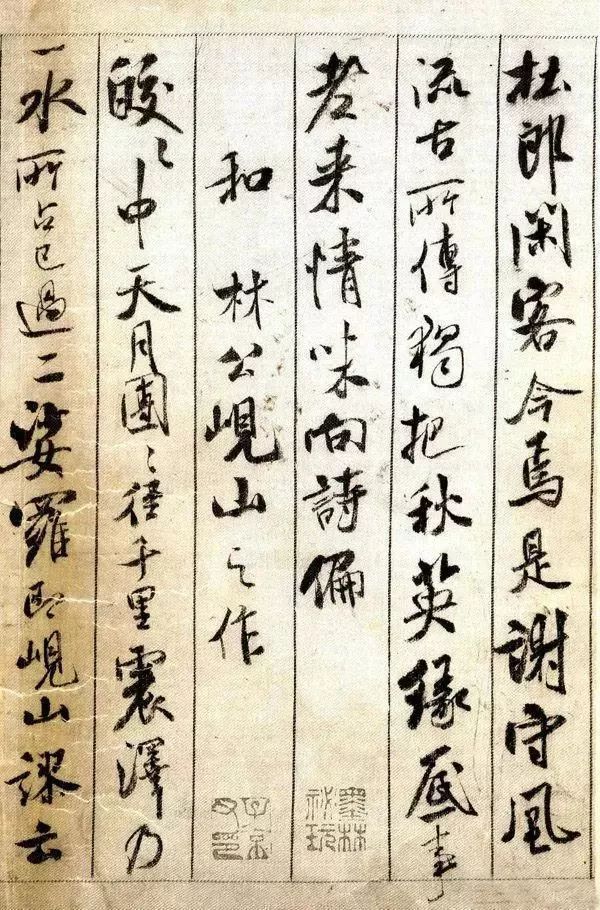 杜郎閑客今焉是謝守風
流古所傳獨把秋英緣底事
老来情味向詩偏
和林公峴山之作
皎〻中天月團〻徑千里震澤乃
一水所占已過二娑羅即峴山謬云
墨林秘玩
子京父印